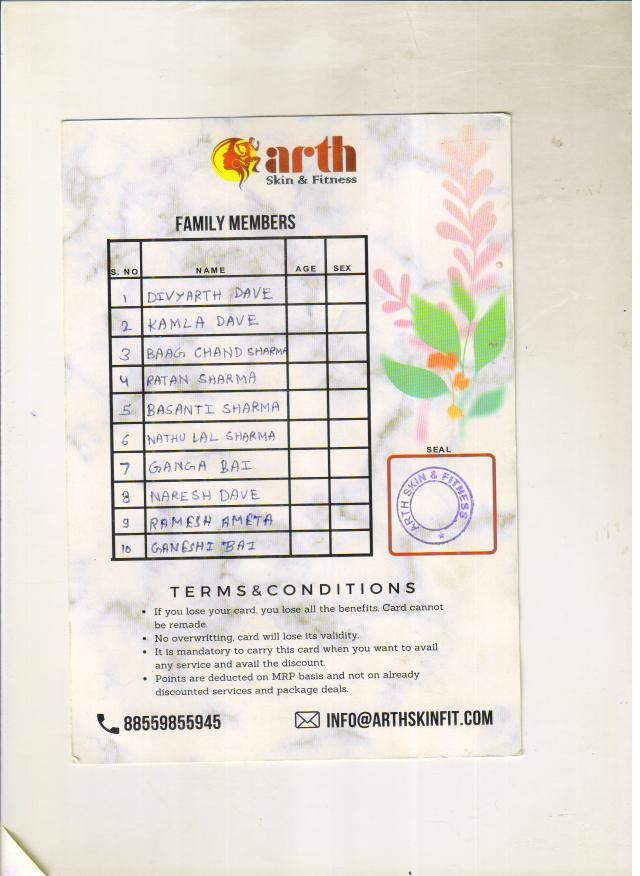 arth
Skin & Fitness
FAMILY MEMBERS
S. NO NAME AGE SEX
1 DIVYARTH DAVE
2 KAMLA DAVE
3 BAAG CHAND SHARMA
4 RATAN SHARMA
5 BASANTI SHARMA
6 NATHU LAL SHARMA
7 GANGA BAI
8 NARESH DAVE
9 RAMESH AMETA
10 GANESHI BAI
SEAL
ARTH SKIN & FITNESS
TERMS&CONDITIONS
• If you lose your card, you lose all the benefits. Card cannot
be remade.
• No overwritting, card will lose its validity.
• It is mandatory to carry this card when you want to avail
any service and avail the discount.
• Points are deducted on MRP basis and not on already
discounted services and package deals.
88559855945 INFO@ARTHSKINFIT.COM